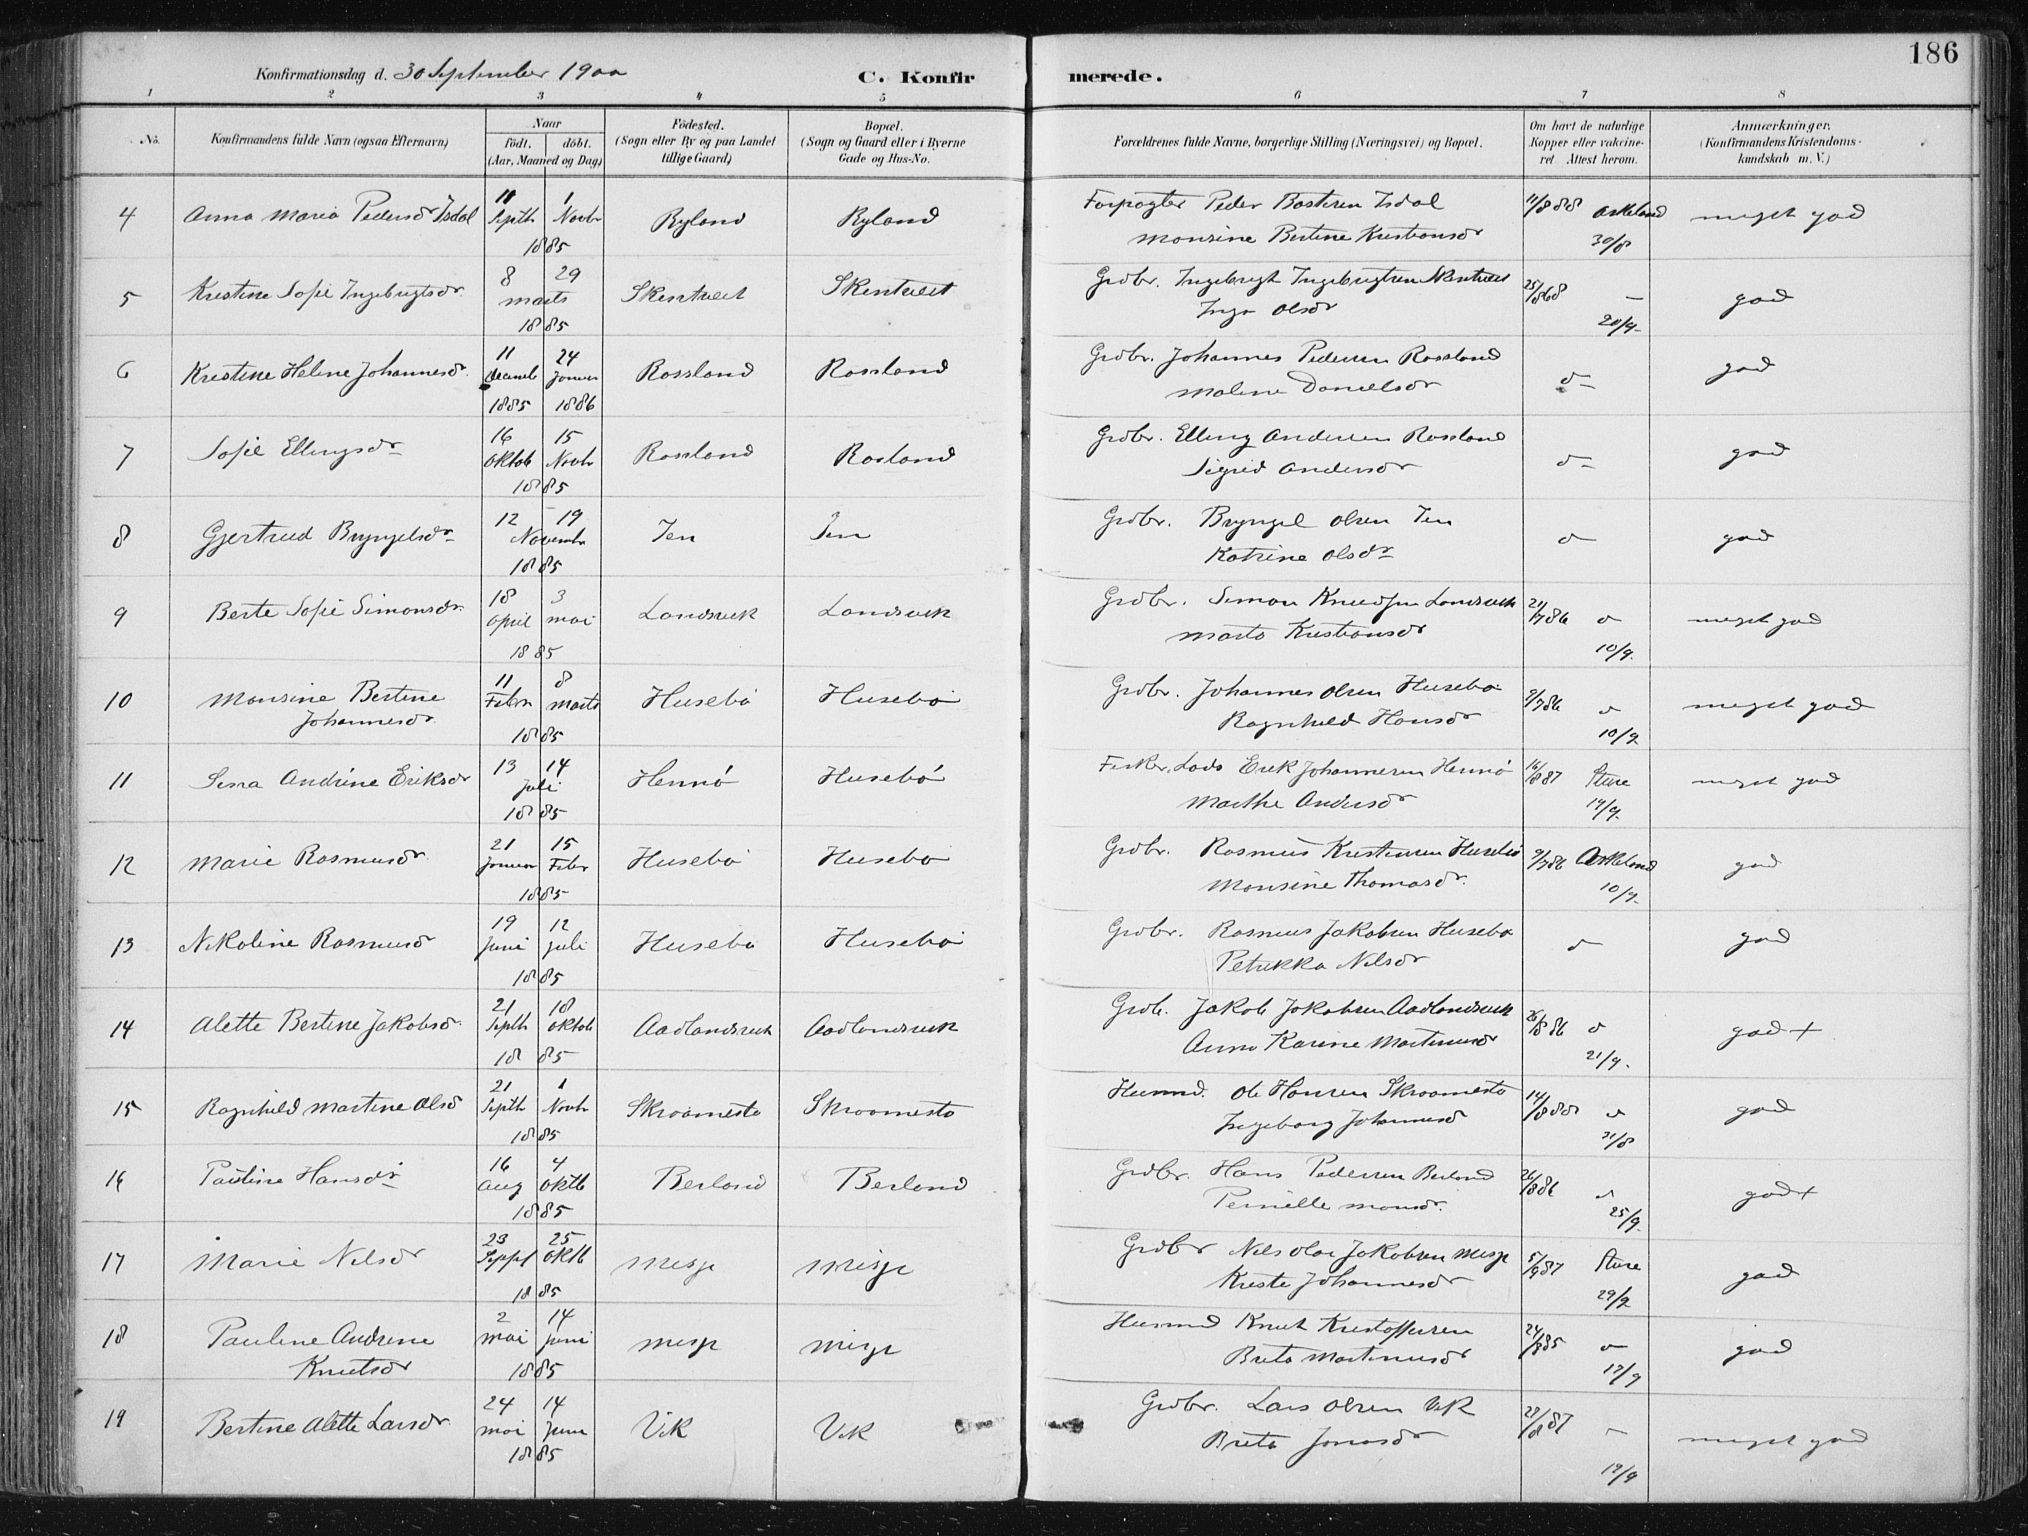 186
Konfirmationsdag d. 30 September 1900
C. Konfirmerede.
1 2 3 4 5 6 7 8
No. Konfirmandens fulde Navn (ogsaa Efternavn) Naar født. døbt. (Aar, Maaned og Dag) Fødested. (Sogn eller By og paa Landet tillige Gaard) Bopæl. (Sogn og Gaard eller i Byerne Gade og Hus-No. Forældrenes fulde Navne, borgerlige Stilling (Næringsvei) og Bopæl. Om havt de naturlige Kopper eller vaccineret. Attest herom. Anmærkninger. (Konfirmandens Kristendomskundskab m. V.)
4 Anna Maria Pedersdr Isdal 11 Septb 1 Novbr 1885 Ryland Ryland Forpagter Peder Bastesen Isdal 11/8 88 Askeland meget god
Monsine Bertine Kristiansdr 30/8
5 Kristine Sofie Ingebrigtsdr. 8 29 marts 1885 Skintveit Skintveit Grdbr. Ingebrigt Ingebrigtsen Skintveit 25/8 68 — god
Inga Olsdr 20/9
6 Kristine Helene Johannesdr. 11 Decemb 1885 24 Januar 1886 Rossland Rossland Grdbr. Johannes Pedersen Rossland god
Malene Danielsdr
7 Sofie Ellingsdr 16 Oktob 15 Novbr 1885 Rossland Rosland Grdbr. Elling Andersen Rossland god
Sigrid Andersdr
8 Gjertrud Bryngelsdr 12 19 Novembr 1885 Ien Ien Grdbr. Bryngel Olsen Ien god
Katrine Olsdr
9 Berte Sofie Simonsdr. 18 April 3 mai 1885 Landsvik Landsvik Grdbr. Simon Knudsen Landsvik 21/7 86 meget god
Marta Kristiansdr 10/9
10 Monsine Bertine Johannesdr. 11 Febr 8 Marts 1885 Husebø Husebø Grdbr. Johannes Olsen Husebø 9/7 86 meget god
Ragnhild Hansdr 10/9
11 Sina Andrine Eriksdr 13 14 Juli 1885 Hennø Husebø Fisker, Lods Erik Johannesen Hennø 16/8 87 Sture meget god
Marthe Andersdr 19/9
12 Marie Rasmusdr 21 Januar 15 Febr 1885 Husebø Husebø Grdbr. Rasmus Kristensen Husebø 9/7 86 Askeland god
Monsine Thomasdr. 10/9
13 Nikoline Rasmusdr 19 Juni 12 Juli 1885 Husebø Husebø Grdbr. Rasmus Jakobsen Husebø god
Petrikka Nilsdr
14 Alette Bertine Jakobsdr. 21 Septb 18 Oktob 1885 Aadlandsvik Aadlandsvik Grdb. Jakob Jakobsen Aadlandsvik 26/8 86 god +
Anna Karine Martinusdr 21/9.
15 Ragnhild Martine Olsd 21 Septb 1 Novbr 1885 Skroamesto Skroamesto Husmd. Ole Hansen Skroamesto 14/8 88 god
Ingeborg Johannesd 31/8
16 Pauline Hansdr 16 Aug 4 Oktb 1885 Berland Berland Grdbr. Hans Pedersen Berland 26/8 86 god +
Pernille Monsdr. 25/9
17 Marie Nilsdr 23 Sept 25 Oktb 1885 Misje Misje Grdbr Nils Olai Jakobsen Misje 5/9 87 Sture god
Kriste Johannesdr 29/9
18 Pauline Andrine Knutsdr 2 mai 14 Juni 1885 Misje Misje Husmd Knut Kristoffersen 24/8 85 god
Brita Martinusdr 12/9
19 Bertine Alette Larsdr 24 mai 14 Juni 1885 Vik Vik Grdbr. Lars Olsen Vik 27/8 87 — meget god
Brita Jonasdr 12/9